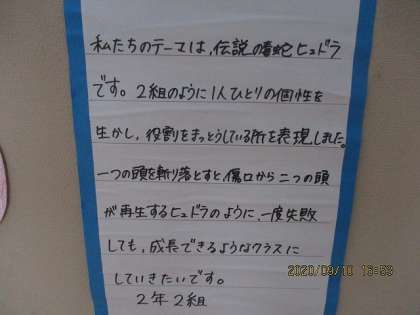 私たちのテーマは、伝説の毒蛇ヒュドラ
です。2組のように1人ひとりの個性を
生かし、役割をまっとうしている所を表現しました。
一つの頭を斬り落とすと傷口から二つの頭
が再生するヒュドラのように、一度失敗
しても、成長できるようなクラスに
していきたいです。
2年2組
2020/09/10 16:53